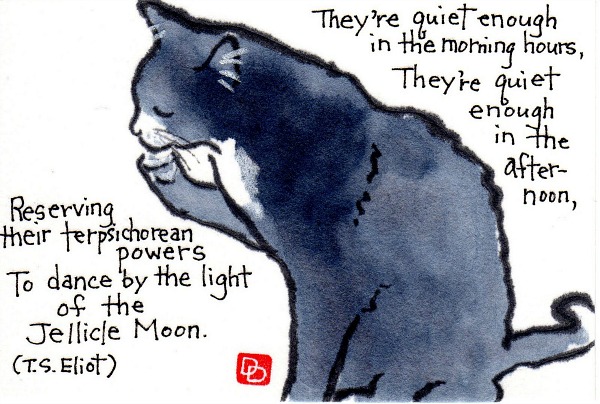 They're quiet enough
in the morning hours,
They're quiet
enough
in the
after-
noon,
Reserving
their terpsichorean
powers
To dance by the light
of the
Jellicle Moon.
(T.S. Eliot)
DD